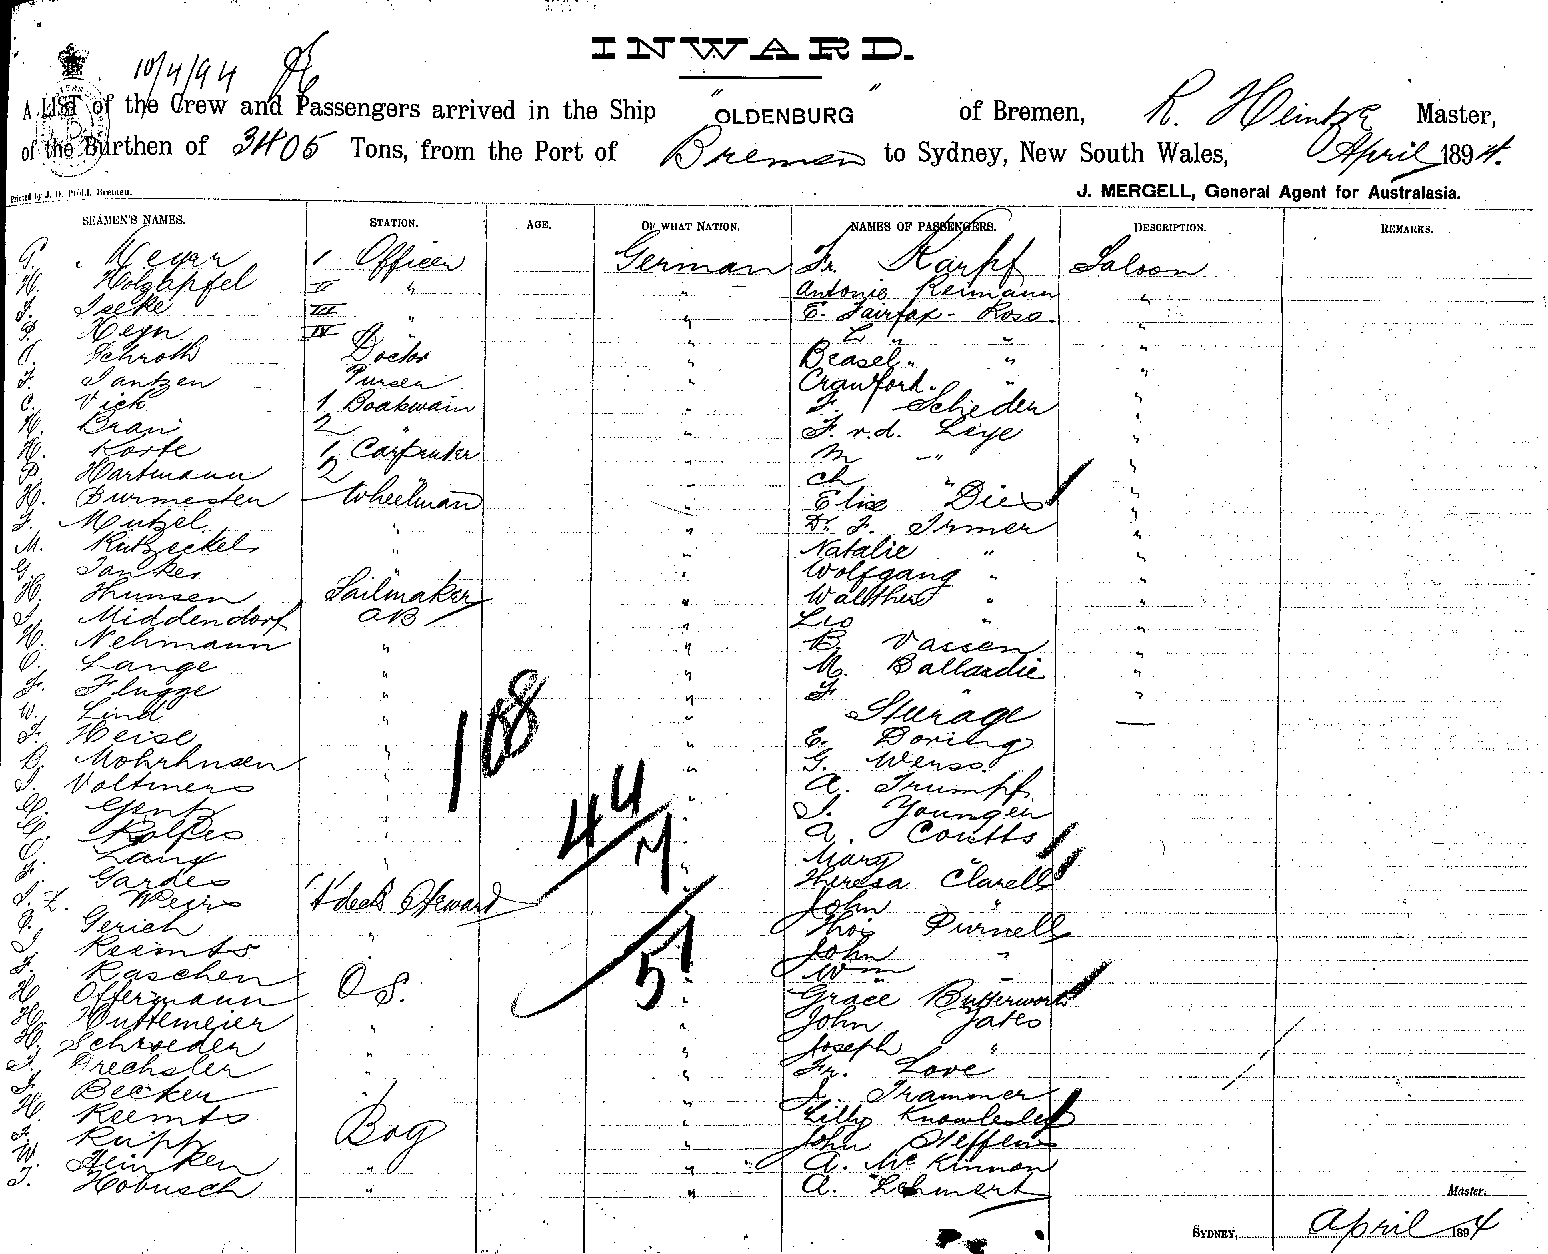 INWARD.
10/4/94
A LIST of the Crew and Passengers arrived in the Ship "OLDENBURG" of Bremen, R. Heintze Master,
of the Burthen of 3405 Tons, from the Port of Bremen to Sydney, New South Wales, April 1894.
Printed by J. D. Bremen.
J. MERGELL, General Agent for Australasia.
SEAMEN'S NAMES. STATION. AGE. OF WHAT NATION. NAMES OF PASSENGERS. DESCRIPTION. REMARKS.
G. Meyer 1 Officer German Fr. Karpf Saloon
H. Holzapfel II " " Antonie Reimann "
J. Iseke III " " E. Fairfax-Ross "
P. Heyn IV " " " " "
Schroth Doctor " Beasel " " "
F. Jantzen Purser " Crawford " " "
C. Vick 1 Boatswain " F. Scheder "
H. Bran 2 " " F. v.d. Leye "
H. Korte 1 Carpenter " M " "
P. Hartmann 2 " " Ch " "
H. Burmester Wheelman " Elise Dies "
J. Mutzel " " Dr. F. Irmer "
M. " " Natalie " "
G. Janker " " Wolfgang " "
H. Hunsen Sailmaker " Walther " "
J. Middendorf AB " Leo " "
H. Nehmann " " B. Vassen "
O. Lange " " M. Ballardie "
F. Flugge " " F " "
W. Lind " " Sturage —
F. Heise " " E. Doring
D. Mohrhusen " " G. Werss
J. Voltmers " " A. Trumpf
G. Gentz " " J. Younger
G. Rolfes " " A. Coutts
C. Lang " " Mary "
F. Gardes " " Theresa Clarell
J. Z. T'deck Steward " John "
Gerich " " Thos Purnell
J. Reemts " " John "
F. Raschen O S. " Wm "
H. Offermann " " Grace Butterworth
H. Huttemeier " " John Yates
H. Schroeder " " Joseph "
J. Drechsler " " Fr. Love
J. Becker " " J. Trammer
H. Reemts Boy " Lilly Knowlesley
Rupp " " John Steffens
W. Heinken " " A. McKinnon
T. Hobusch " " A. Lehmert
108
44
7
51
Master.
SYDNEY, April 1894